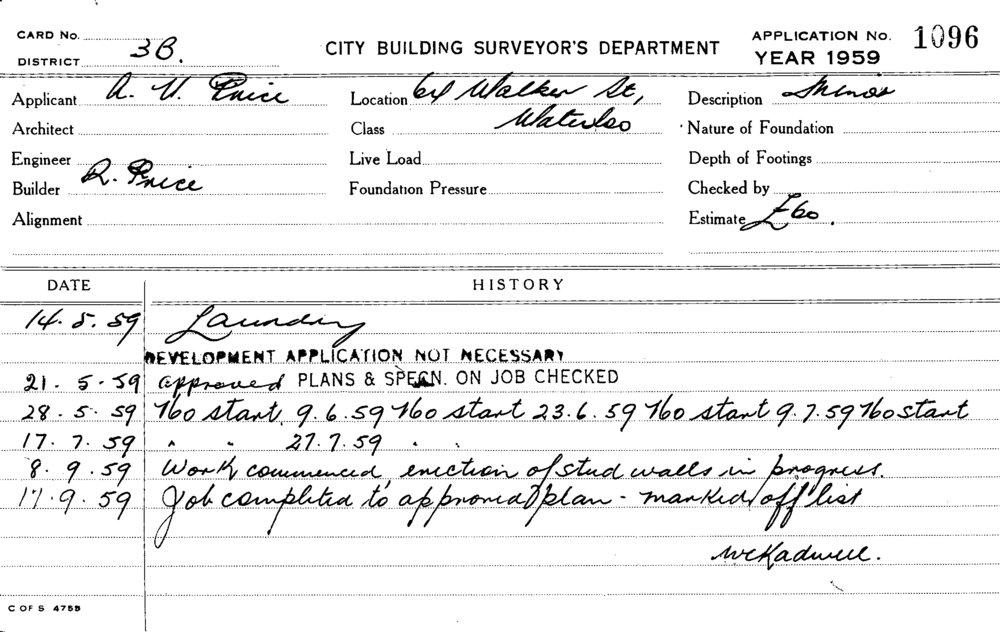 CARD No.
DISTRICT 3B.
CITY BUILDING SURVEYOR'S DEPARTMENT
APPLICATION No. 1096
YEAR 1959
Applicant A. V. Price Location 64 Walker St, Description Minor
Architect Class Waterloo Nature of Foundation
Engineer Live Load Depth of Footings
Builder R. Price Foundation Pressure Checked by
Alignment Estimate £60.
DATE HISTORY
14.5.59 Laundry
DEVELOPMENT APPLICATION NOT NECESSARY
21.5.59 approved PLANS & SPECN. ON JOB CHECKED
28.5.59 No start. 9.6.59 No start 23.6.59 No start 9.7.59 No start
17.7.59 " " 27.7.59 " "
8.9.59 Work commenced, erection of stud walls in progress.
17.9.59 Job completed to approved plan - marked off list
C OF S 4755